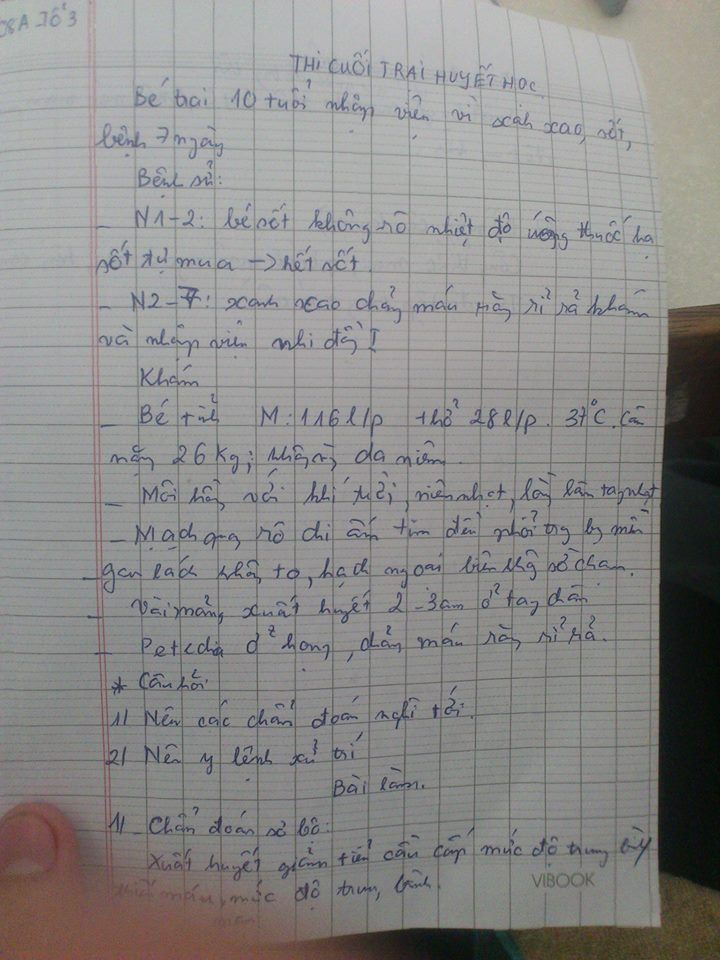 08A Tổ 3
THI CUỐI TRẠI HUYẾT HỌC
Bé trai 10 tuổi nhập viện vì xanh xao, sốt,
bệnh 7 ngày
Bệnh sử:
_ N1-2: bé sốt không rõ nhiệt độ uống thuốc hạ
sốt tự mua -> hết sốt.
_ N2-7: xanh xao chảy máu răng rỉ rả khám
và nhập viện nhi đồng I
Khám
_ Bé tỉnh M: 116 l/p thở 28 l/p. 37°C. Cân
nặng 26 Kg; da niêm.
_ Môi hồng với khí trời, niêm nhạt, lòng bàn tay nhạt
_ Mạch quay rõ chi ấm tim đều phổi trong bụng mềm
_ gan lách không to, hạch ngoại biên không sờ chạm.
_ Vài mảng xuất huyết 2-3cm ở tay chân
_ Petechia ở họng, chảy máu răng rỉ rả.
* Câu hỏi
1/ Nên các chẩn đoán nghĩ tới.
2/ Nên y lệnh xử trí
Bài làm.
1/ _ Chẩn đoán sơ bộ:
Xuất huyết giảm tiểu cầu cấp mức độ trung bình
thiếu máu mức độ trung bình.
VIBOOK